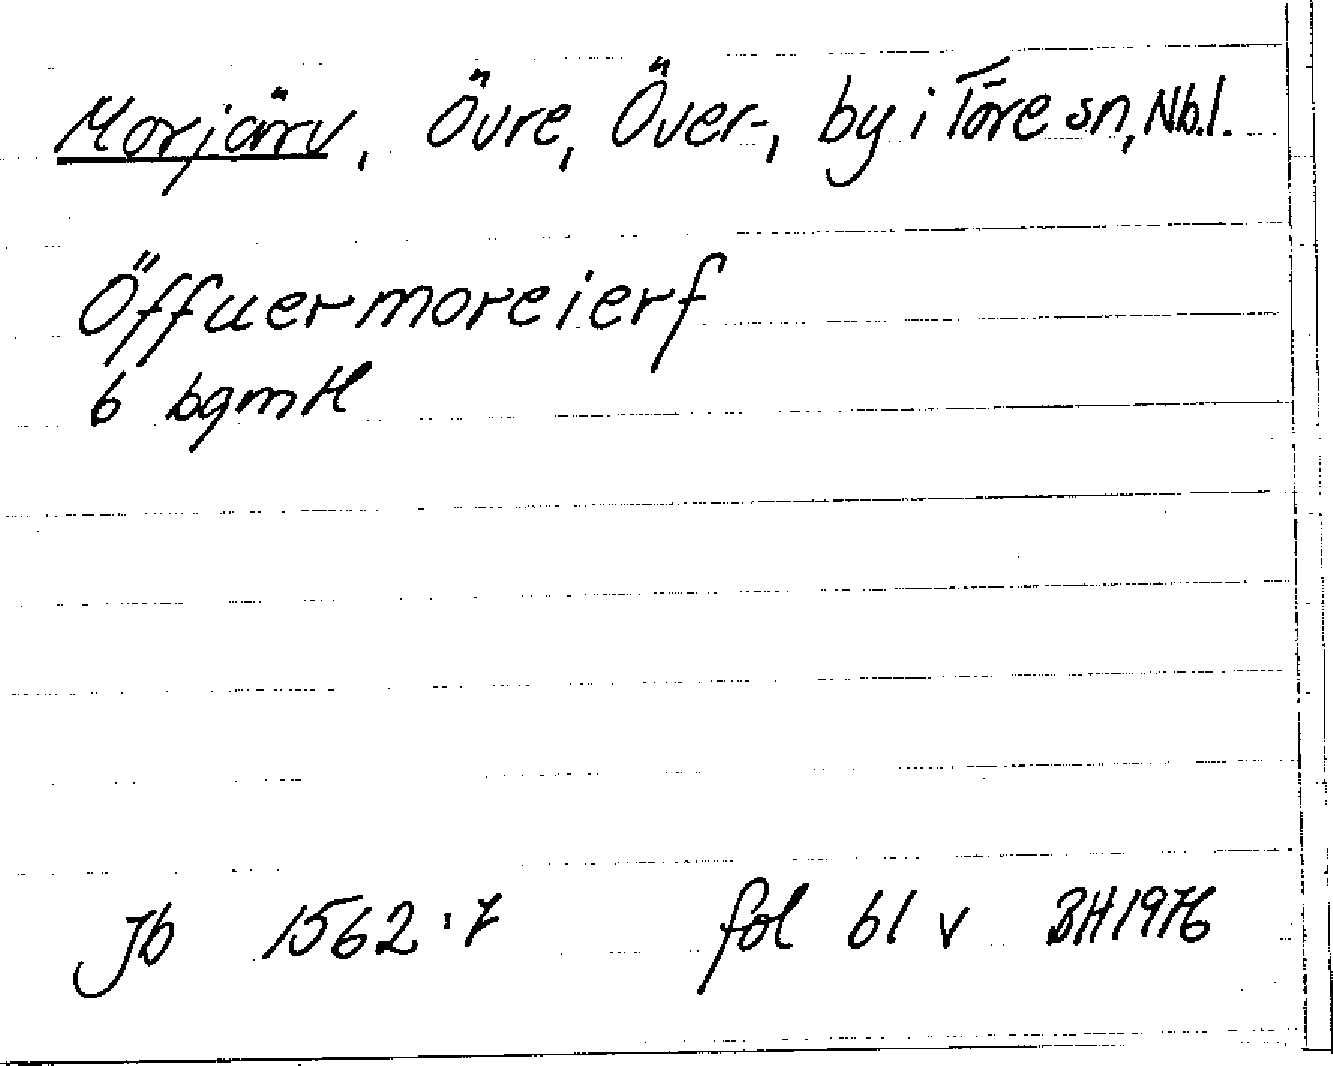 Morjärv, Övre, Över-, by i Töre sn, Nb.l.
Öffuermoreierf
6 bgmtl
Jb 1562:7 fol 61 v BH1976